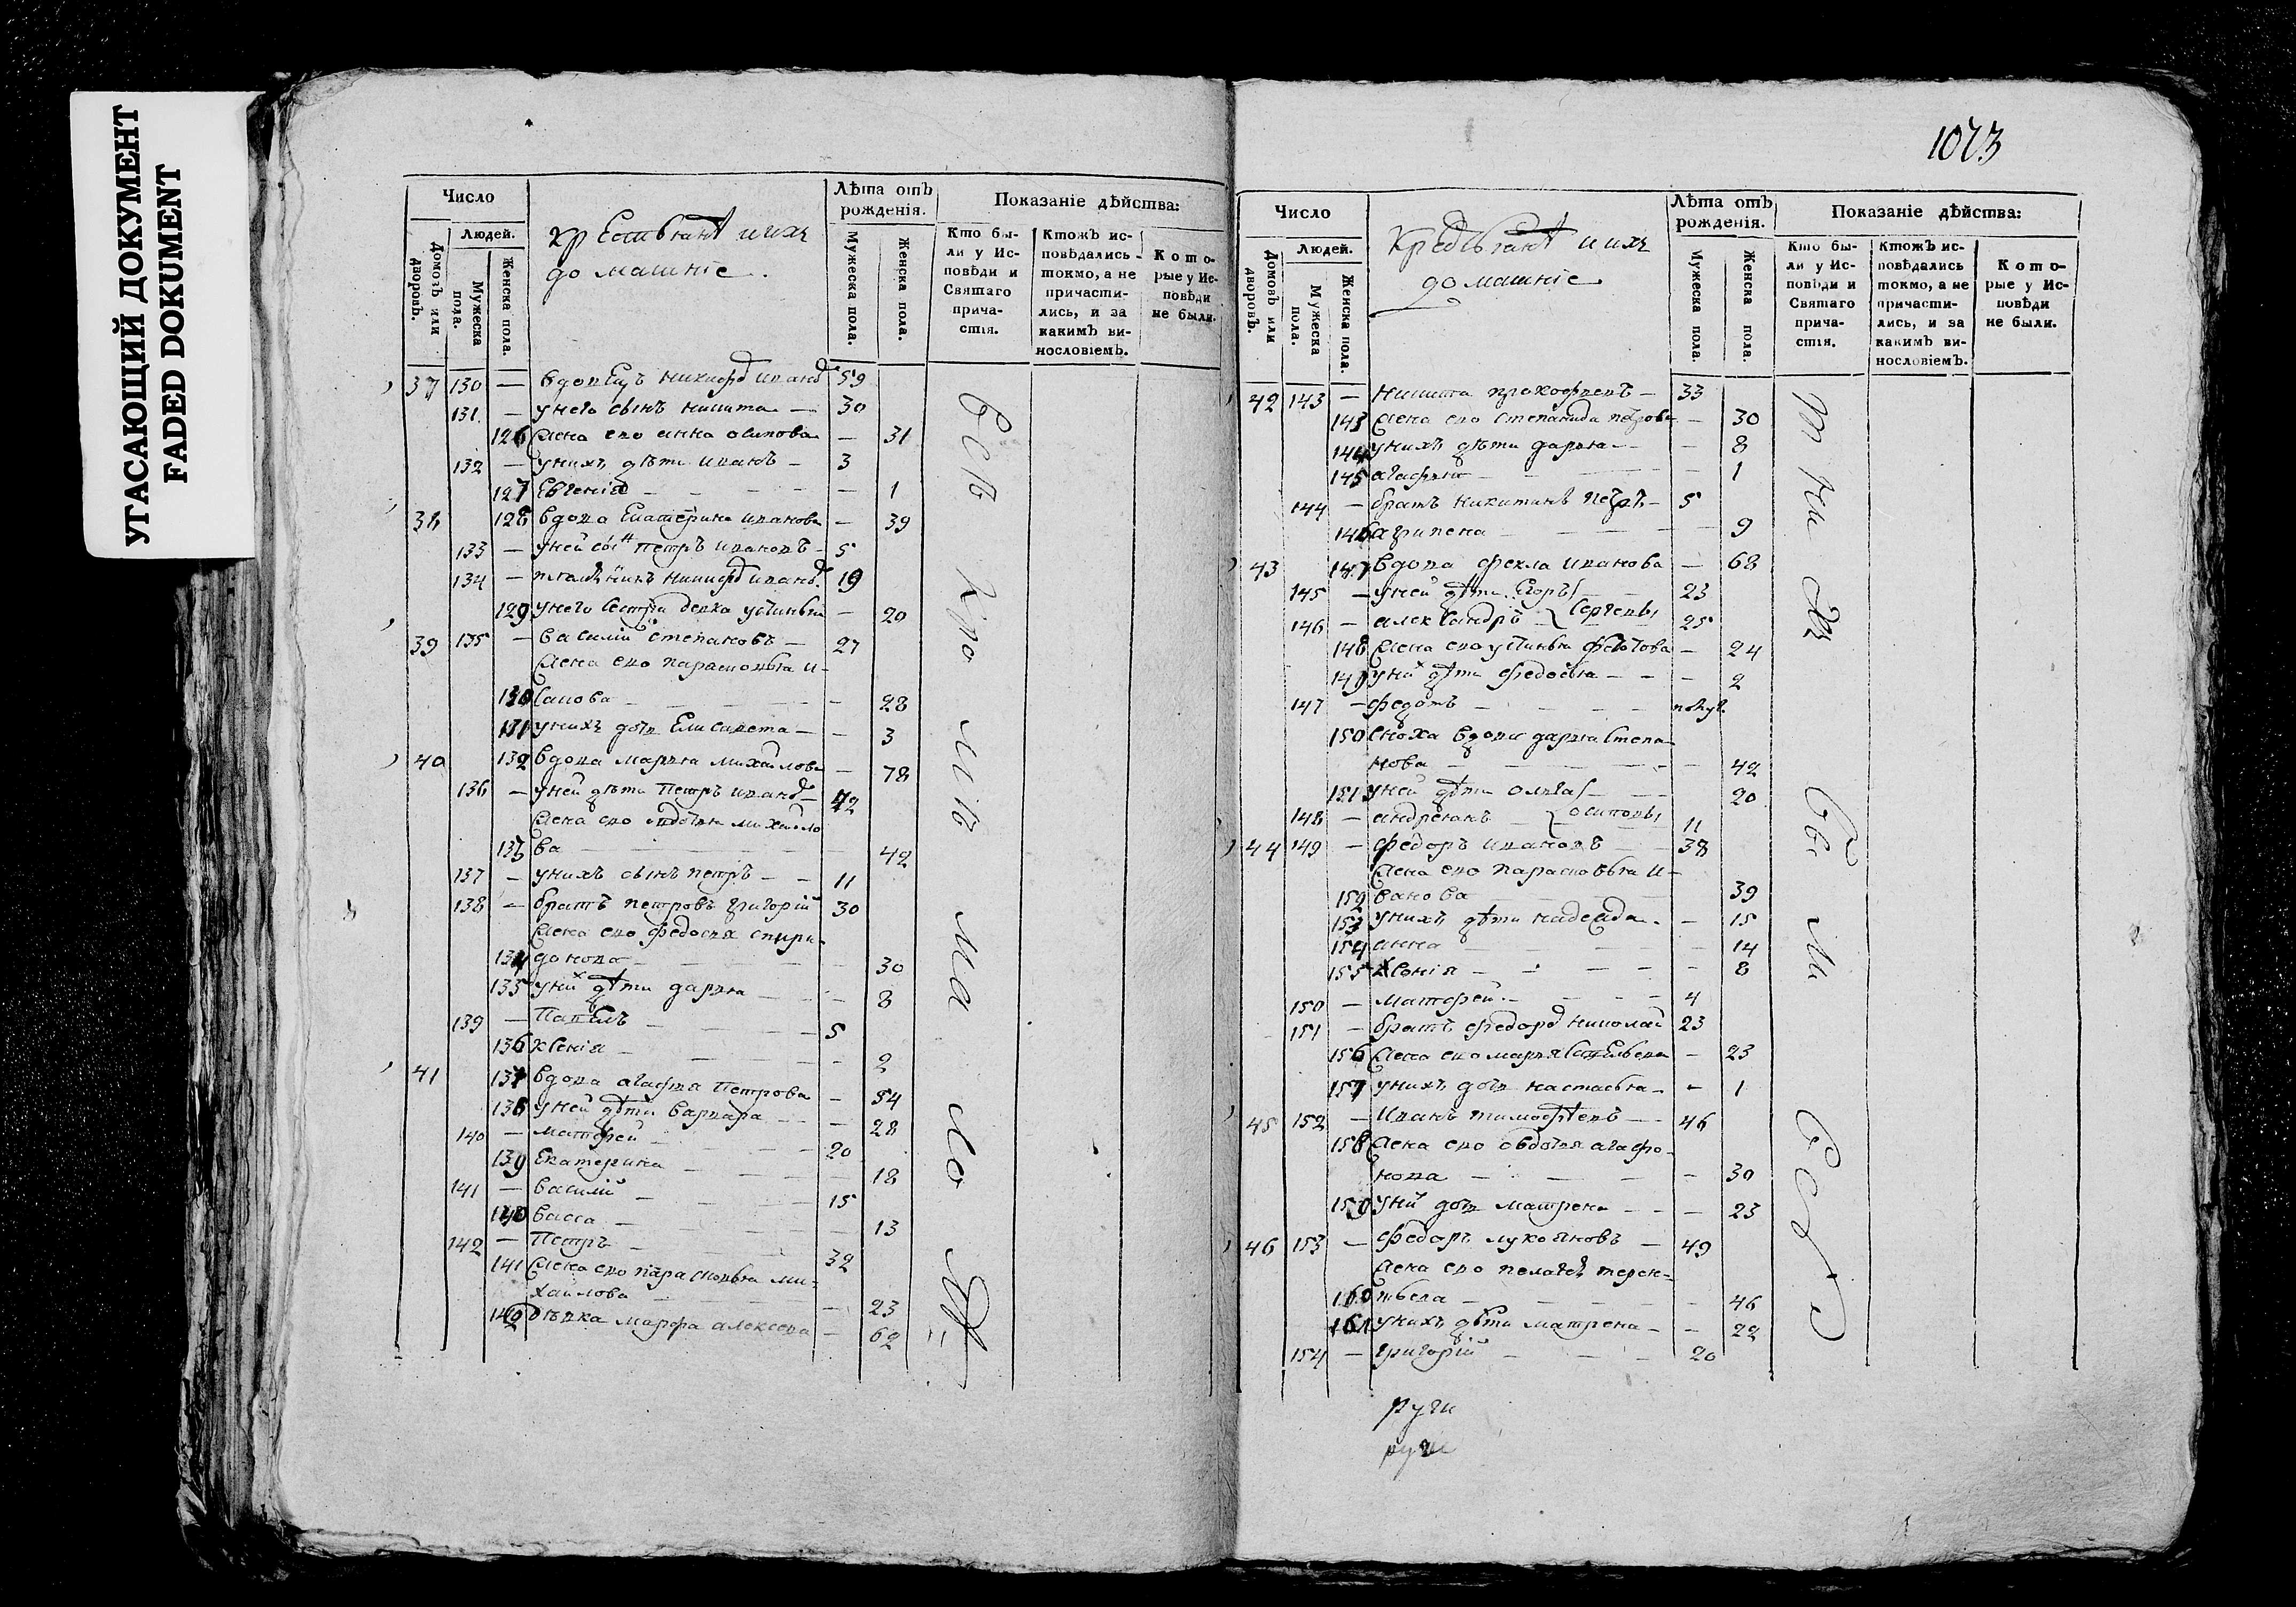 УГАСАЮЩИЙ ДОКУМЕНТ
FADED DOKUMENT
1073
Число
Людей.
Домовъ или дворовъ.
Мужеска пола.
Женска пола.
крестьянѣ и ихъ
домашніе
Лѣта отъ рожденія.
Мужеска пола.
Женска пола.
Показаніе дѣйства:
Кто были у Исповѣди и Святаго причастія.
Ктожъ исповѣдались токмо, а не причастились, и за какимъ винословіемъ.
Которые у Исповѣди не были.
37 130 — вдовецъ никифоръ иванов 59
131 — у него сынъ никита — 30
126 жена ево анна осипова — 31
132 — у нихъ дѣти иванъ — 3
127 Евгенія — 1
38 128 вдова Екатерина иванова — 39
133 — у ней сынъ петръ ивановъ — 5
134 — племянникъ никифоръ иванов 19
129 у него сестра девка устинья — 20
39 135 — василий степановъ — 27
жена ево парасковья и-
130 сакова — 28
131 у нихъ дочь Елисавета — 3
40 132 вдова марья михайлова — 78
136 — у ней дѣти Петръ иванов — 42
жена ево авдотья михайло
133 ва — 42
137 — у нихъ сынъ петръ — 11
138 — братъ петровъ григорій 30
жена ево федосья спири-
134 донова — 30
135 у них дѣти дарья — 8
139 — Павелъ — 5
136 ксенія — 2
41 137 вдова агафья Петрова — 54
138 у ней дѣти варвара — 28
140 — матфей — 20
139 Екатерина — 18
141 — василий — 15
140 васса — 13
142 — Петръ — 32
141 жена ево парасковья ми-
хайлова — 23
142 дѣвка марфа алексеева — 62
Число
Людей.
Домовъ или дворовъ.
Мужеска пола.
Женска пола.
крестьянѣ и ихъ
домашніе
Лѣта отъ рожденія.
Мужеска пола.
Женска пола.
Показаніе дѣйства:
Кто были у Исповѣди и Святаго причастія.
Ктожъ исповѣдались токмо, а не причастились, и за какимъ винословіемъ.
Которые у Исповѣди не были.
42 143 — Никита прокофьевъ — 33
143 жена ево степанида петрова — 30
144 у нихъ дѣти дарья — 8
145 агафья — 1
144 — братъ никитинъ петръ — 5
146 агрипена — 9
43 147 вдова фекла иванова — 68
145 — у ней дѣти Егоръ — 23
146 — александръ } сергеевы 25
148 жена ево устинья федотова — 24
149 у них дѣти федосья — 2
147 — федотъ — полуг.
150 сноха вдова дарья степа-
нова — 42
151 у ней дѣти ольга — 20
148 — андреянъ } осиповы 11
44 149 — федоръ ивановъ — 38
жена ево парасковья и-
152 ванова 39
153 у нихъ дѣти надежда — 15
154 анна — 14
155 ксенія — 8
150 — матфей — 4
151 — братъ федоров николай 23
156 жена ево марья савельева — 23
157 у нихъ дочь настасья — 1
45 152 — иванъ тимофѣевъ — 46
158 жена ево овдотья агафо-
нова — 30
159 у них дочь матрена — 23
46 153 — федоръ лукояновъ — 49
жена ево пелагея терен-
160 тьева — 46
161 у нихъ дѣти матрена — 22
154 — григорій — 20
руги
руги